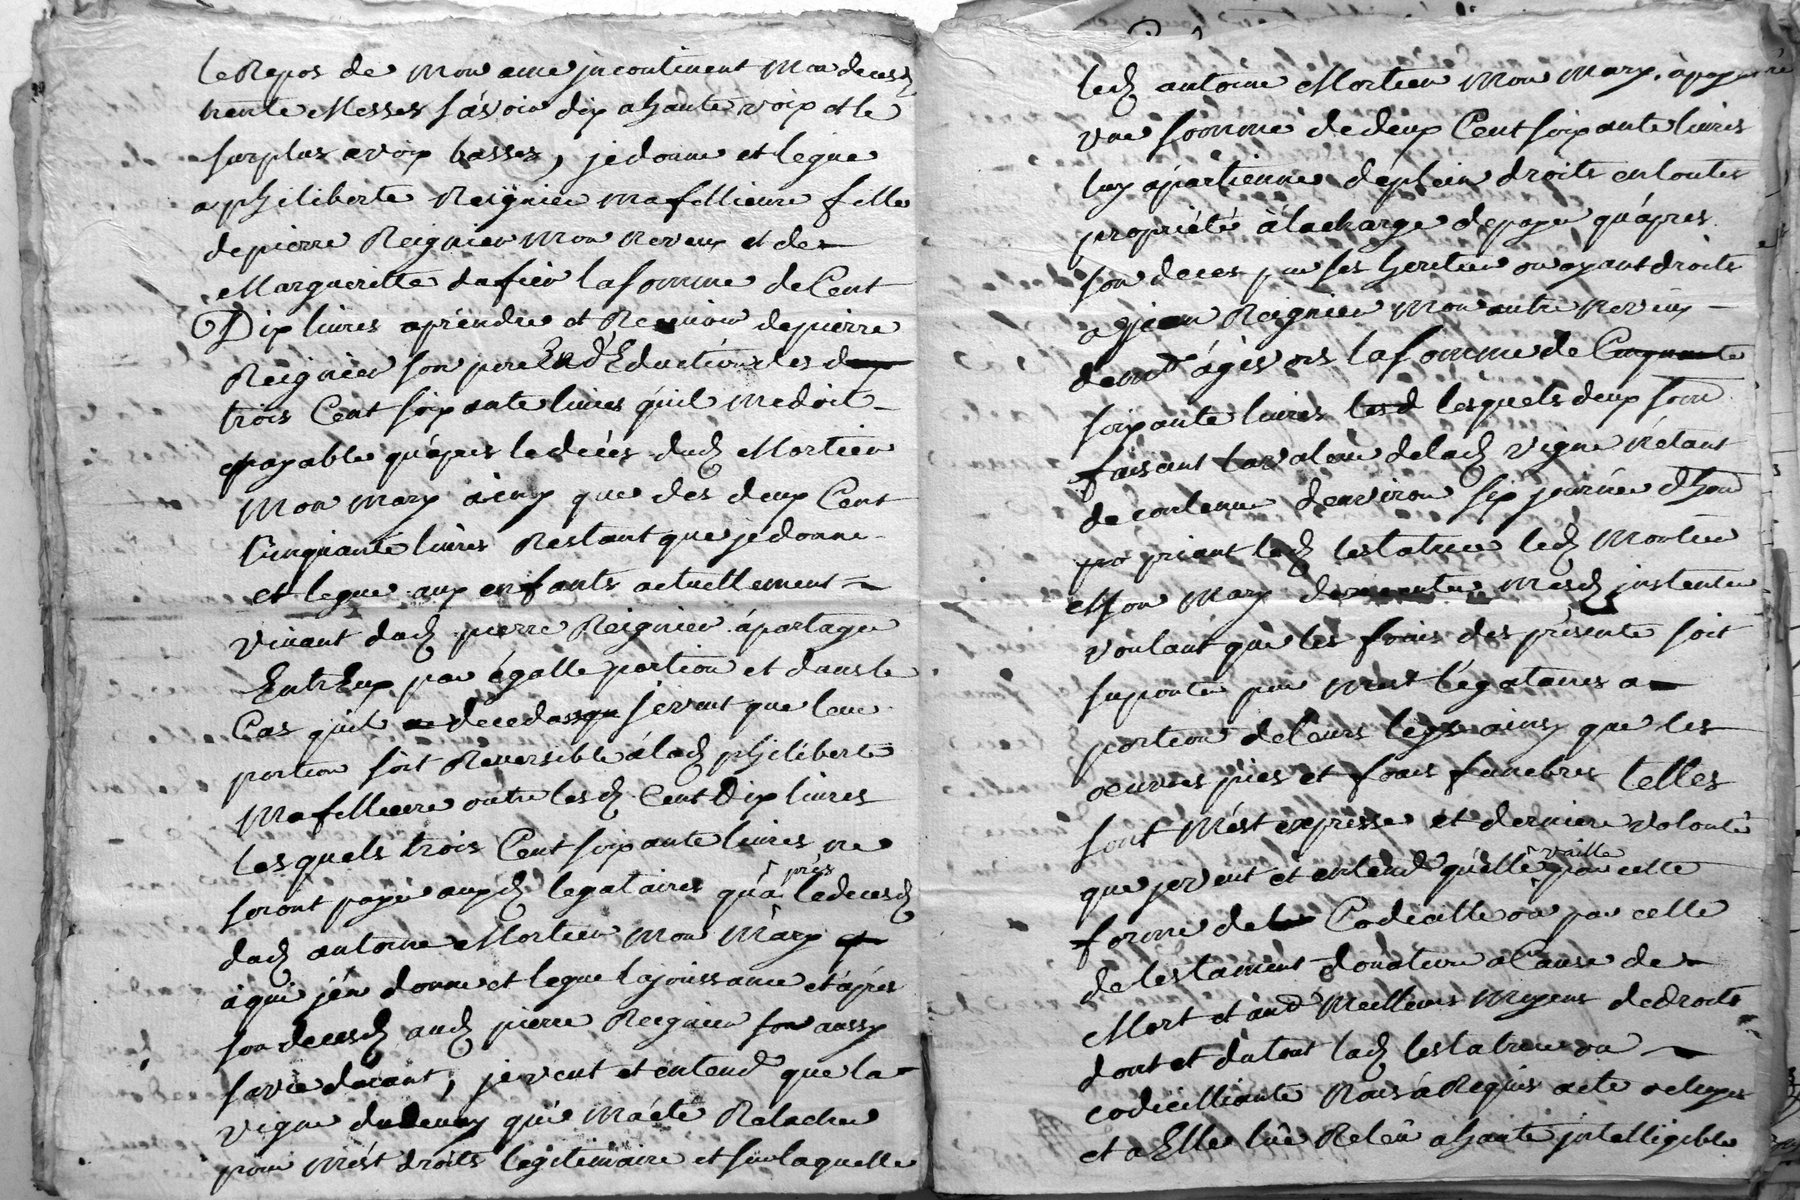 le Repos de mon ame jncontinent mon deces
trente Messes sàvoir dix a haute voix et le
surplus a voix basses, je donne et legue
a philiberte Reignier ma fillieure fille
de pierre Reignier mon neveux et de
Margueritte dafier la somme de Cent
Dix livres a prendre et Recevoir de pierre
Reignier son pere En dEduction des
trois Cent soixante livres quil me doit
payable qu'apres le décés dud Mortier
Mon mary ainsy que des deux Cent
Cinquante livres Restant que je donne
et legue aux enfants actuellement
vivant dud pierre Reignier a partager
EntrEux par égalle portion et dans le
Cas quil decedasse je veut que leur
portion soit Reversible á lad philiberte
Ma fillieure outre lesd Cent Dix livres
lesquels trois Cent soixante livres ne
seront payé auxd legataires qu'a près le deces
dud antoine Mortier Mon Mary
a qui j'en donne et legue la jouissance et áprés
son deces aud pierre Reignier son aussy
sa vie durant, je veut et entend que la
vigne qui m'a été Relachee
pour mest droits legitimaire et sur laquelle
led antoine Mortier Mon Mary. a payé
vne somme de deux Cent soixante livres
luy apartienne de plein droits en toutes
propriété à la charge de payer qu'apres
son deces par ses heritier ou ayant droits
a jean Reignier Mon autre neveux
la somme de Cinquante
soixante livres lesquels deux som
faisant la valeur de lad vigne n'étant
de contenue d'environ six journée d'hom
priant lad testatrice led Mortier
son Mary
voulant que les frais des présente soit
suporter par mest légataires a
portion de leurs legs ainsy que les
oeuvres pies et frais funebres telles
sont mést expresse et derniere volonté
que je veut et entend qu'elle vaille par cette
forme de Codicille ou par celle
de testament donation a Cause de
Mort et aud Meilleurs Moyens de droits
dont et du tout lad testatrice ou
codicilliante Nous á Requis acte octroyé
et a Elle lüe Relüe a haute jntelligible